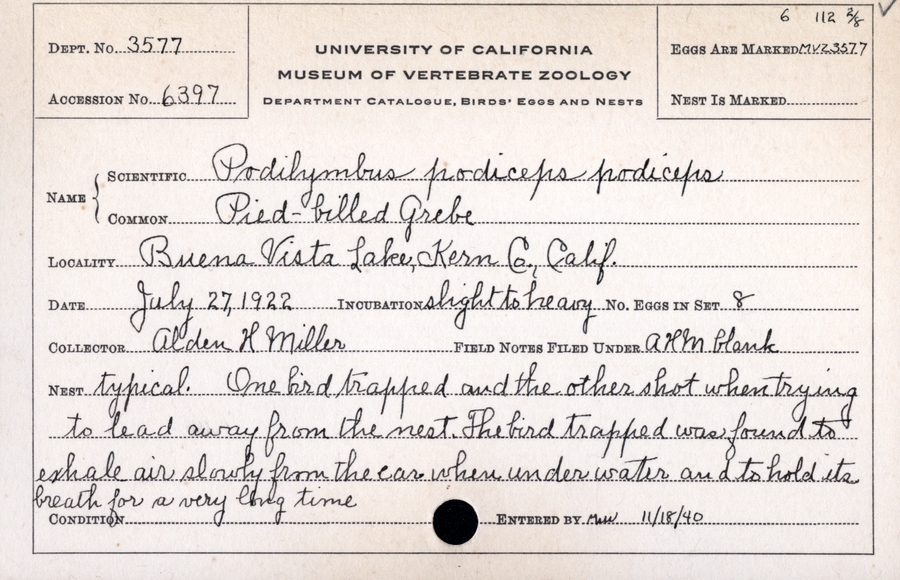 6 112 3/8
Dept. No. 3577
UNIVERSITY OF CALIFORNIA
MUSEUM OF VERTEBRATE ZOOLOGY
Department Catalogue, Birds' Eggs and Nests
Eggs Are Marked MVZ3577
Accession No. 6397
Nest Is Marked
Name
Scientific Podilymbus podiceps podiceps
Common Pied-billed Grebe
Locality Buena Vista Lake, Kern Co., Calif.
Date July 27, 1922 Incubation slight to heavy No. Eggs in Set 8
Collector Alden H Miller Field Notes Filed Under AHM blank
Nest typical. One bird trapped and the other shot when trying
to lead away from the nest. The bird trapped was found to
exhale air slowly from the ear when under water and to hold its
breath for a very long time
Condition Entered by 11/18/40